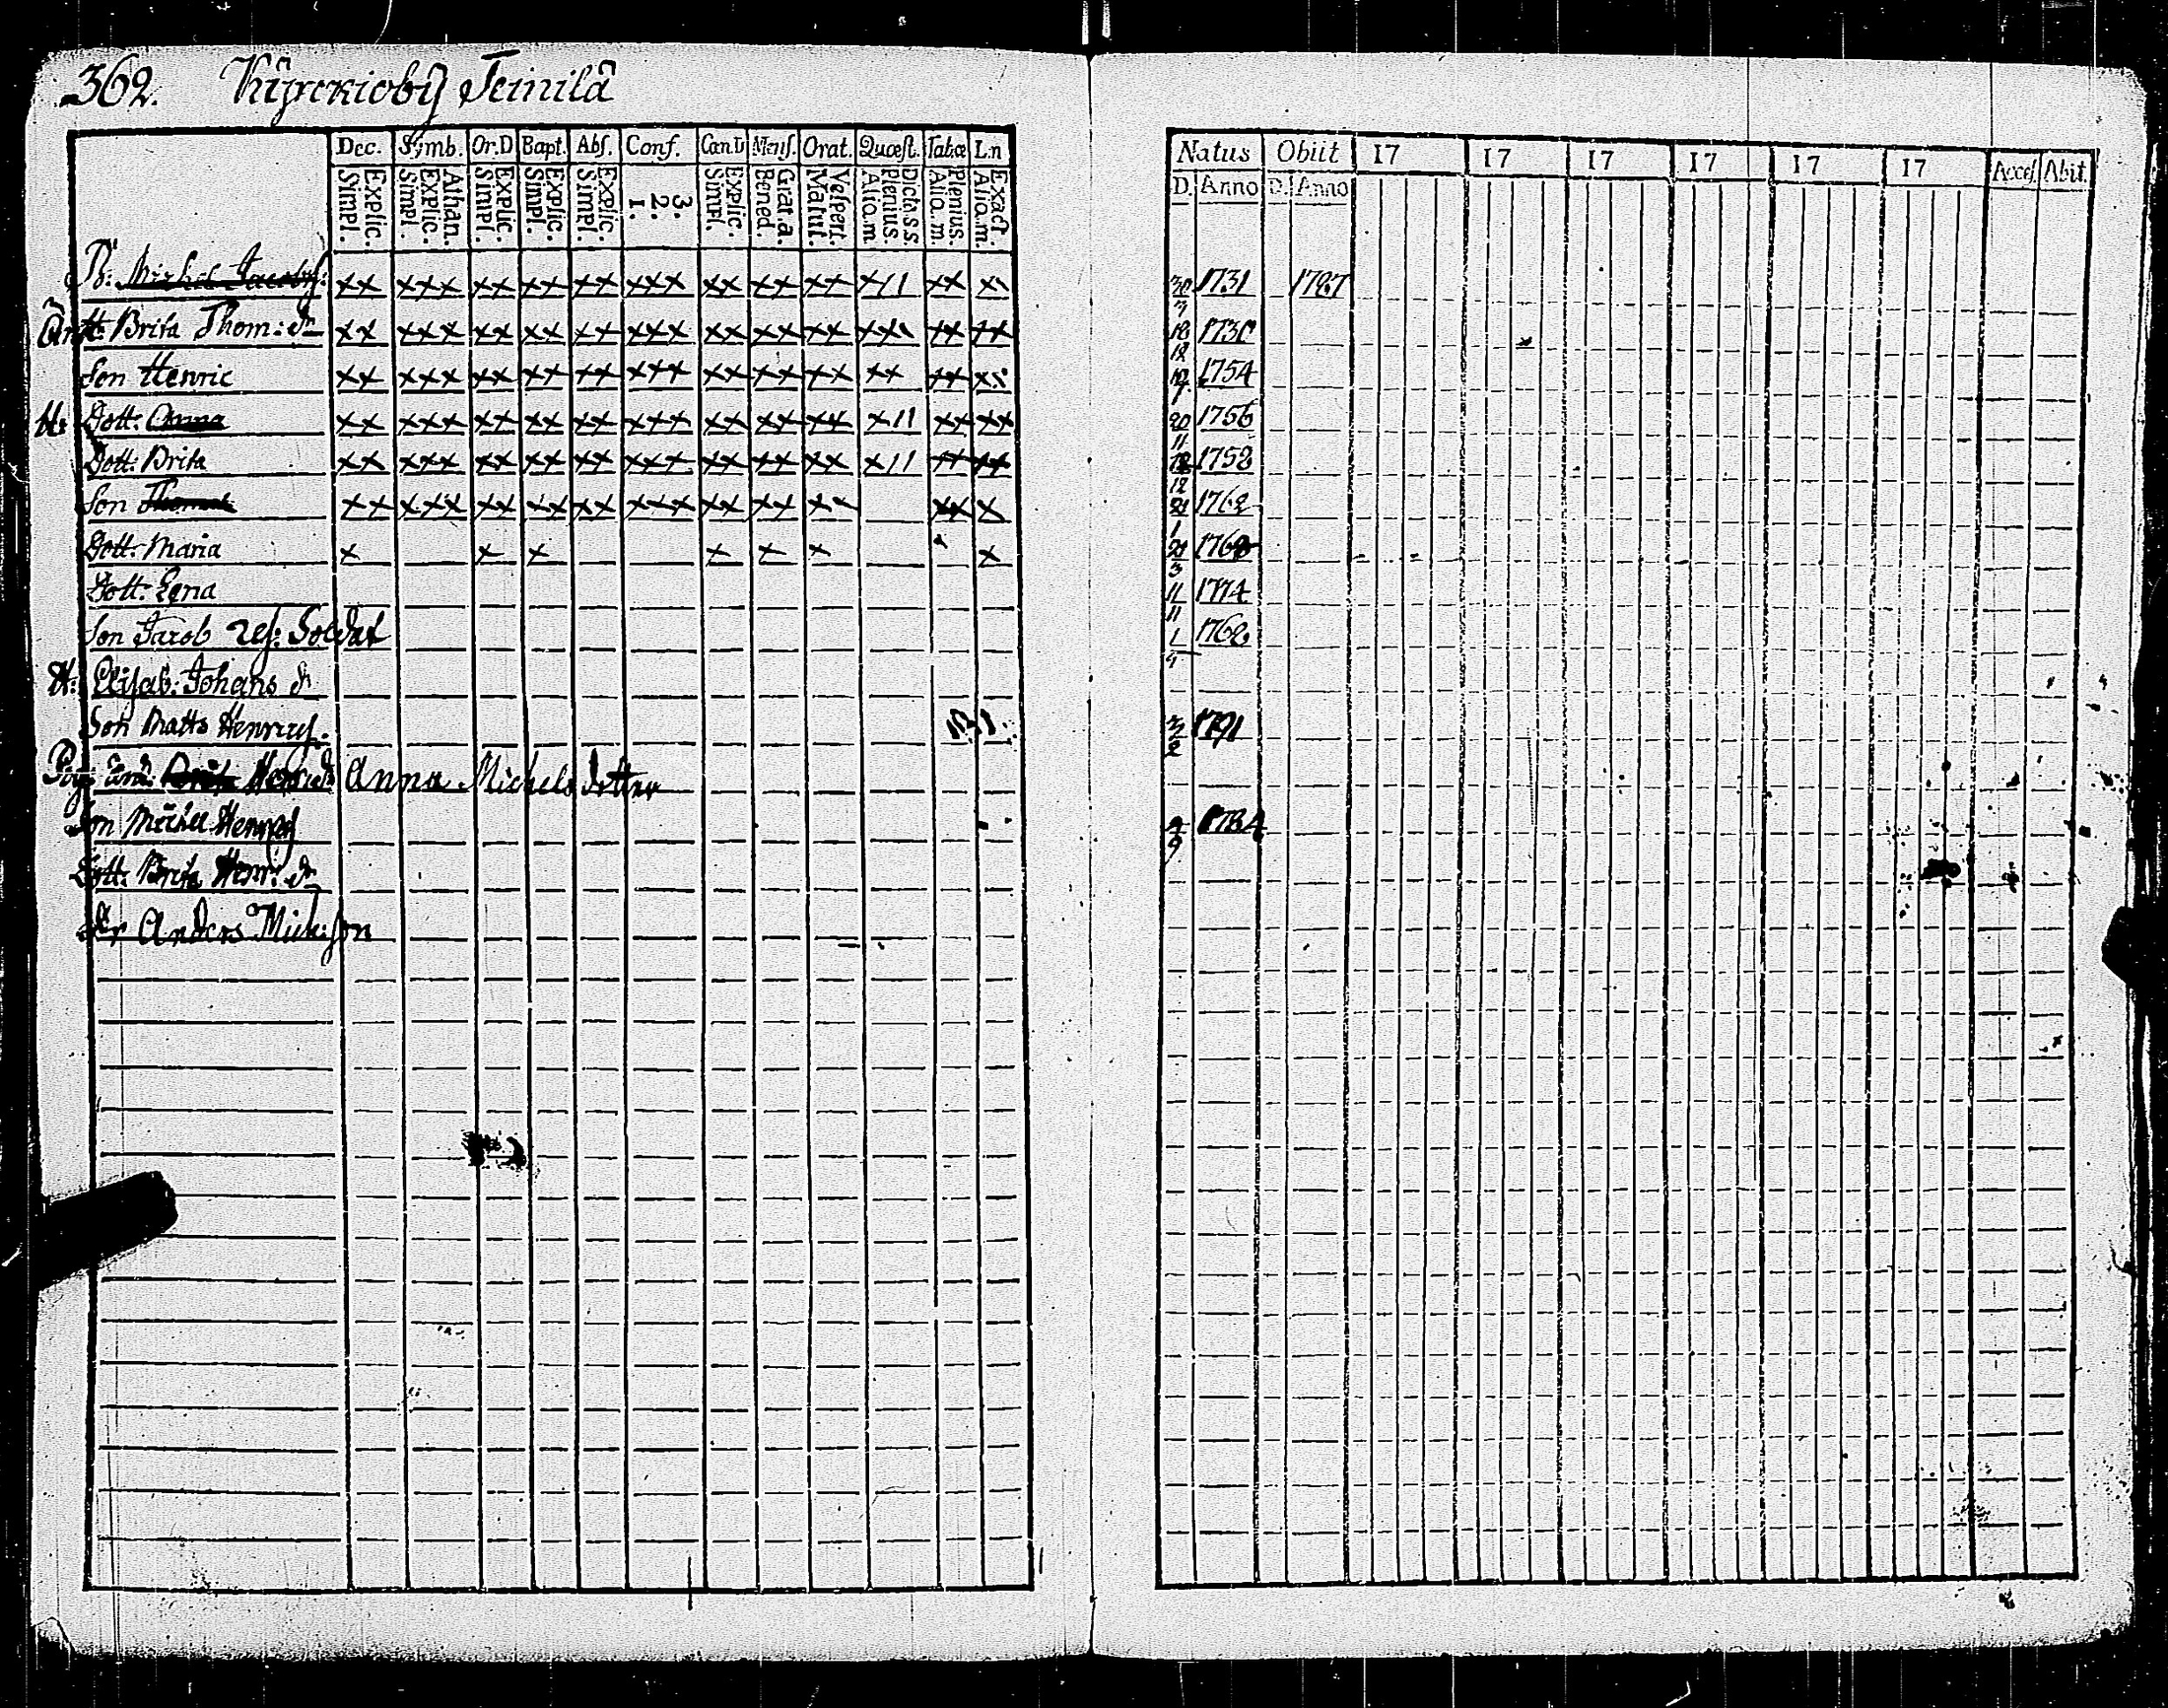 362. Kyrckioby Teinilä
Dec. Symb. Or.D Bapt. Abs. Conf. Mens. Orat. Quæst. Tabæ L.n
Explic. Simpl. Athan. Explic. Simpl. Explic. Simpl. Explic. Simpl. Explic. Simpl. 3. 2. 1. Explic. Simpl. Grat.a. Bened. Vespert. Matut. Dicta s.s. Plenius. Aliq.m. Plenius. Aliq.m. Exact. Aliq.m.
Natus Obiit 17 17 17 17 17 17 Acces. Abit.
D. Anno D. Anno
B: Michel Jacobss: xx xxx xx xx xx xxx xx xx xx x11 xx 30 1731 1787
Enk: Brita Thom: dr xx xxx xx xx xx xxx xx xx xx xx xx 18 1730
Son Henric xx xxx xx xx xx xxx xx xx xx xx xx 1754
H: Dott: Anna xx xxx xx xx xx xxx xx xx xx x11 xx xx 20 1756
Dott: Brita xx xxx xx xx xx xxx xx xx xx x11 xx xx 1758
Son Thomas xx xxx xx xx xx xxx xx xx xx x 21 1762
Dott: Maria x x x x x x x
Dott: Lena 11 1774
Son Jacob res: Soldat 1 1762
H: Elisab: Johans dr
Son Matts Henricss. 1791
Anna Michels dotter
Son Michel Henrss 1784
Dott: Brita Henr: dr
Dr Anders Mich:son